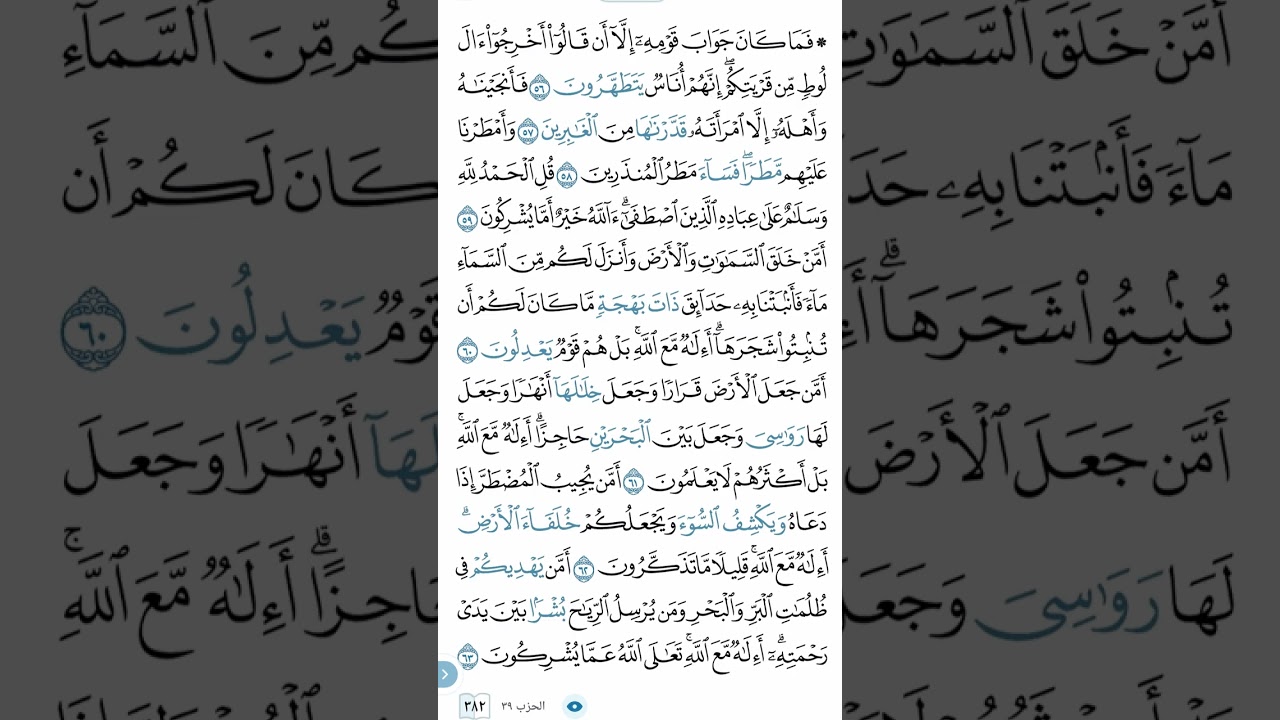 * فَمَا كَانَ جَوَابَ قَوْمِهِۦٓ إِلَّآ أَن قَالُوٓا۟ أَخْرِجُوٓا۟ ءَالَ
لُوطٍ مِّن قَرْيَتِكُمْ ۖ إِنَّهُمْ أُنَاسٌ يَتَطَهَّرُونَ ٥٦ فَأَنجَيْنَـٰهُ
وَأَهْلَهُۥٓ إِلَّا ٱمْرَأَتَهُۥ قَدَّرْنَـٰهَا مِنَ ٱلْغَـٰبِرِينَ ٥٧ وَأَمْطَرْنَا
عَلَيْهِم مَّطَرًا ۖ فَسَآءَ مَطَرُ ٱلْمُنذَرِينَ ٥٨ قُلِ ٱلْحَمْدُ لِلَّهِ
وَسَلَـٰمٌ عَلَىٰ عِبَادِهِ ٱلَّذِينَ ٱصْطَفَىٰٓ ۗ ءَآللَّهُ خَيْرٌ أَمَّا يُشْرِكُونَ ٥٩
أَمَّنْ خَلَقَ ٱلسَّمَـٰوَٰتِ وَٱلْأَرْضَ وَأَنزَلَ لَكُم مِّنَ ٱلسَّمَآءِ
مَآءً فَأَنۢبَتْنَا بِهِۦ حَدَآئِقَ ذَاتَ بَهْجَةٍ مَّا كَانَ لَكُمْ أَن
تُنۢبِتُوا۟ شَجَرَهَآ ۗ أَءِلَـٰهٌ مَّعَ ٱللَّهِ ۚ بَلْ هُمْ قَوْمٌ يَعْدِلُونَ ٦٠
أَمَّن جَعَلَ ٱلْأَرْضَ قَرَارًا وَجَعَلَ خِلَـٰلَهَآ أَنْهَـٰرًا وَجَعَلَ
لَهَا رَوَٰسِىَ وَجَعَلَ بَيْنَ ٱلْبَحْرَيْنِ حَاجِزًا ۗ أَءِلَـٰهٌ مَّعَ ٱللَّهِ ۚ
بَلْ أَكْثَرُهُمْ لَا يَعْلَمُونَ ٦١ أَمَّن يُجِيبُ ٱلْمُضْطَرَّ إِذَا
دَعَاهُ وَيَكْشِفُ ٱلسُّوٓءَ وَيَجْعَلُكُمْ خُلَفَآءَ ٱلْأَرْضِ ۗ
أَءِلَـٰهٌ مَّعَ ٱللَّهِ ۚ قَلِيلًا مَّا تَذَكَّرُونَ ٦٢ أَمَّن يَهْدِيكُمْ فِى
ظُلُمَـٰتِ ٱلْبَرِّ وَٱلْبَحْرِ وَمَن يُرْسِلُ ٱلرِّيَـٰحَ بُشْرًۢا بَيْنَ يَدَىْ
رَحْمَتِهِۦٓ ۗ أَءِلَـٰهٌ مَّعَ ٱللَّهِ ۚ تَعَـٰلَى ٱللَّهُ عَمَّا يُشْرِكُونَ ٦٣
الحزب ٣٩
٣٨٢